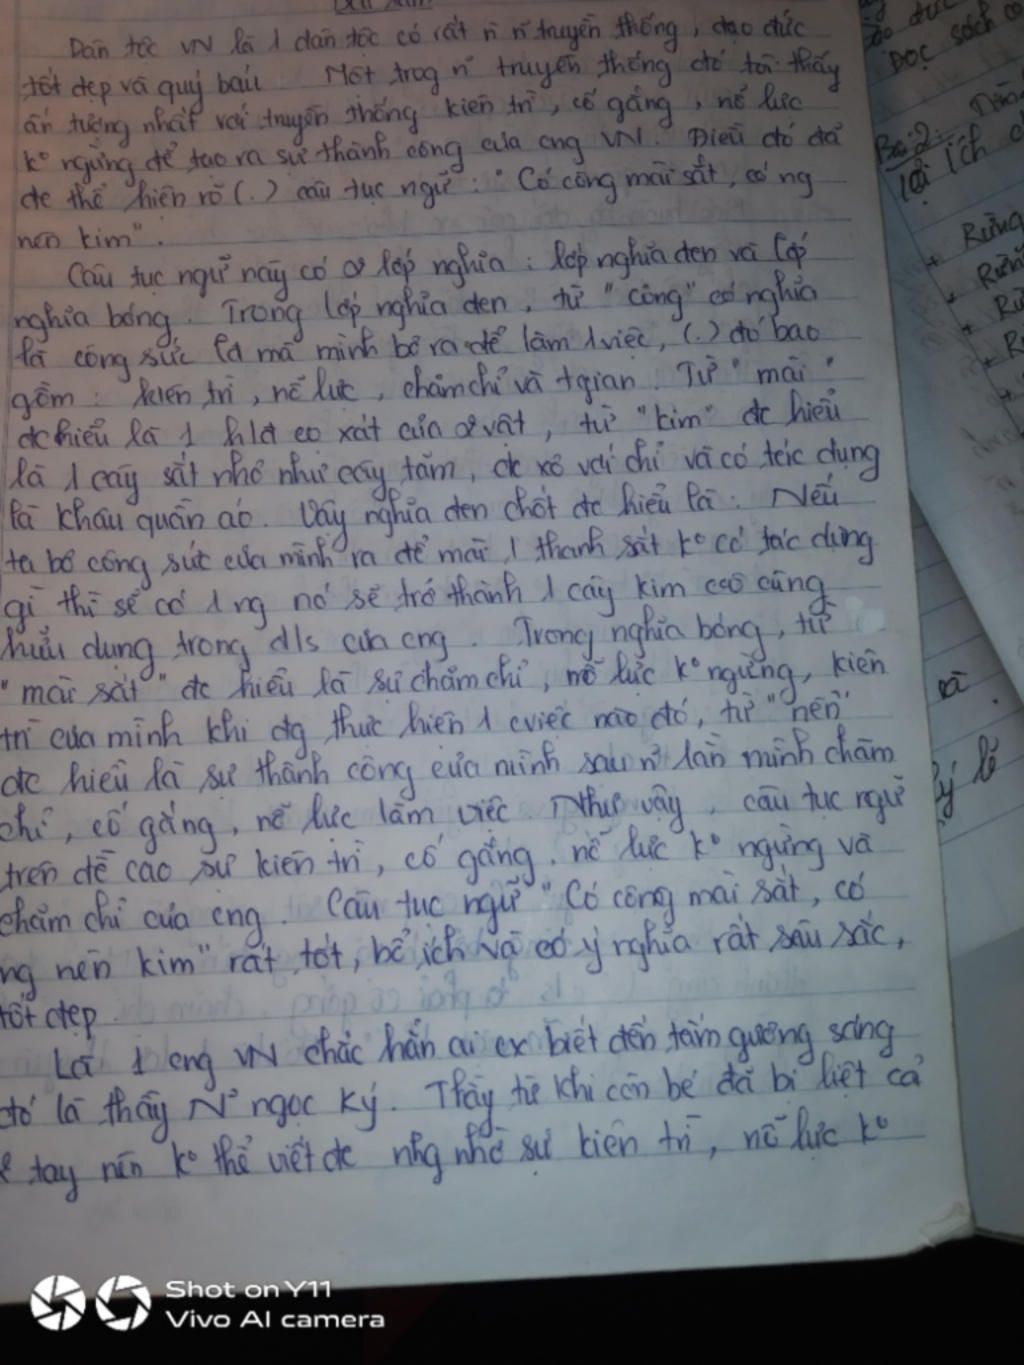 Dân tộc VN là 1 dân tộc có rất n̄ n̄ truyền thống, đạo đức
tốt đẹp và quý báu. Một trog n̄ truyền thống đó tôi thấy
ấn tượng nhất với truyền thống kiên trì, cố gắng, nổ lực
k° ngừng để tạo ra sự thành công của cng VN. Điều đó đã
đc thể hiện rõ (.) câu tục ngữ: "Có công mài sắt, có ng
nên kim".
Câu tục ngữ này có 2 lớp nghĩa: lớp nghĩa đen và lớp
nghĩa bóng. Trong lớp nghĩa đen, từ "công" có nghĩa
là công sức lđ mà mình bỏ ra để làm 1 việc, (.) đó bao
gồm: kiên trì, nổ lực, chăm chỉ và tgian. Từ "mài"
đc hiểu là 1 hđ cọ xát của 2 vật, từ "kim" đc hiểu
là 1 cây sắt nhỏ như cây tăm, đc xỏ với chỉ và có tác dụng
là khâu quần áo. Vậy nghĩa đen chốt đc hiểu là: Nếu
ta bỏ công sức của mình ra để mài 1 thanh sắt k° có tác dụng
gì thì sẽ có 1 ng nó sẽ trở thành 1 cây kim cũng
hữu dụng trong đ/s của cng. Trong nghĩa bóng, từ
"mài sắt" đc hiểu là sự chăm chỉ, nổ lực k° ngừng, kiên
trì của mình khi đg thực hiện 1 cviệc nào đó, từ "nên"
đc hiểu là sự thành công của mình sau n̄ lần mình chăm
chỉ, cố gắng, nổ lực làm việc. Như vậy, câu tục ngữ
trên đề cao sự kiên trì, cố gắng, nổ lực k° ngừng và
chăm chỉ của cng. Câu tục ngữ "Có công mài sắt, có
ng nên kim" rất tốt, bổ ích và có ý nghĩa rất sâu sắc,
tốt đẹp.
Là 1 cng VN chắc hẳn ai biết đến tấm gương sáng
đó là thầy Ng ngọc Ký. Thầy từ khi còn bé đã bị liệt cả
2 tay nên k° thể viết đc nhg nhờ sự kiên trì, nổ lực k°
đức
ĐỌC sách
Bài 2:
lợi ích
+ Rừng
+ Rừng
và
lẽ
Shot on Y11
Vivo AI camera